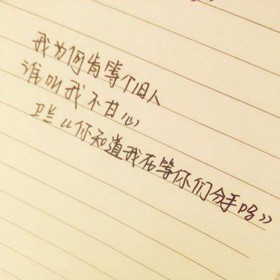 我为何肯等个旧人
谁叫我不甘心
卫兰《你知道我在等你们分手吗》